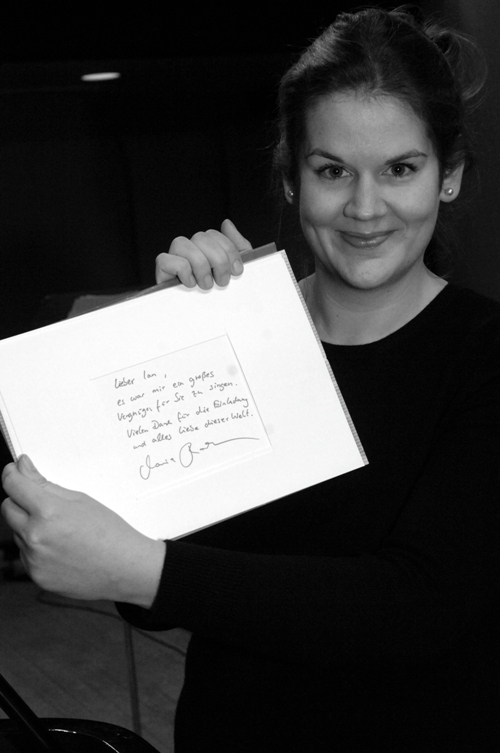 Lieber Ian,
es war mir ein großes
Vergnügen für Sie zu singen.
Vielen Dank für die Einladung
und alles Liebe dieser Welt.